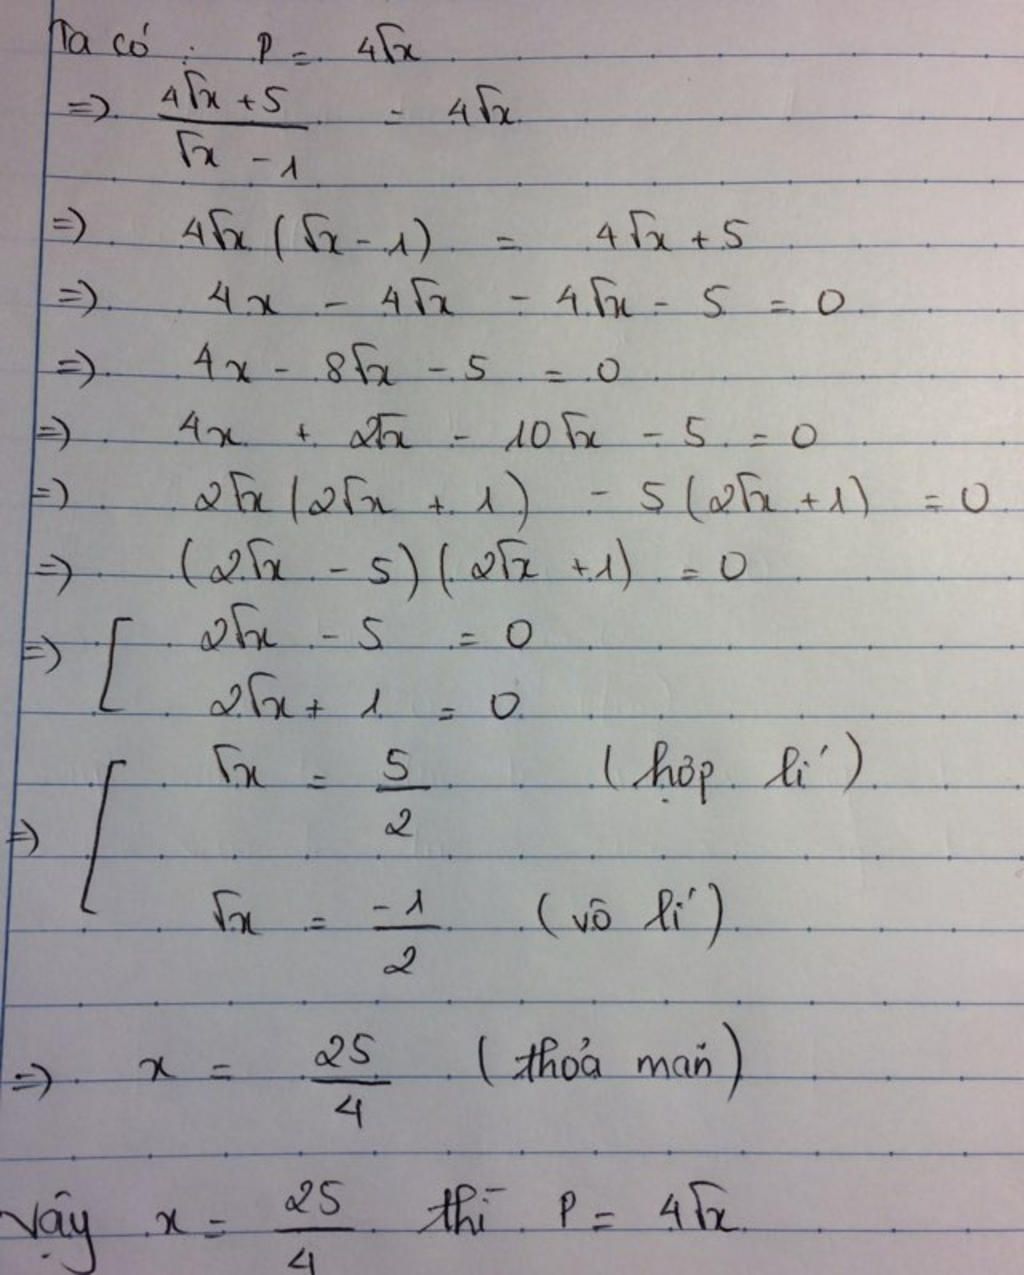 Ta có : P = 4√x
=> (4√x + 5)/(√x - 1) = 4√x
=> 4√x (√x - 1) = 4√x + 5
=> 4x - 4√x - 4√x - 5 = 0
=> 4x - 8√x - 5 = 0
=> 4x + 2√x - 10√x - 5 = 0
=> 2√x (2√x + 1) - 5 (2√x + 1) = 0
=> (2√x - 5) (2√x + 1) = 0
=> [ 2√x - 5 = 0
2√x + 1 = 0
=> [ √x = 5/2 (hợp lí)
√x = -1/2 (vô lí)
=> x = 25/4 (thỏa mãn)
Vậy x = 25/4 thì P = 4√x